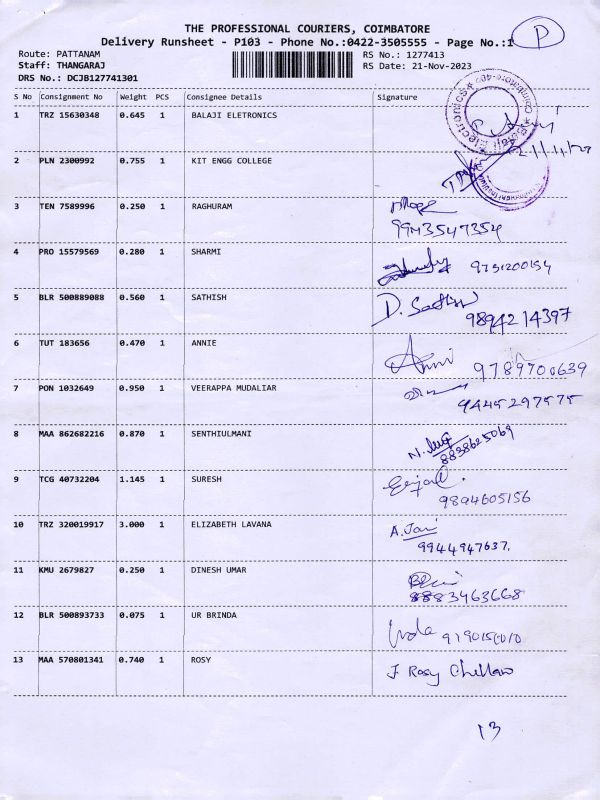 THE PROFESSIONAL COURIERS, COIMBATORE
Delivery Runsheet - P103 - Phone No.:0422-3505555 - Page No.:1 P
Route: PATTANAM RS No.: 1277413
Staff: THANGARAJ RS Date: 21-Nov-2023
DRS No.: DCJB127741301
S No Consignment No Weight PCS Consignee Details Signature
1 TRZ 15630348 0.645 1 BALAJI ELETRONICS
2 PLN 2300992 0.755 1 KIT ENGG COLLEGE
3 TEN 7589996 0.250 1 RAGHURAM
9943547354
4 PRO 15579569 0.280 1 SHARMI
5 BLR 500889088 0.560 1 SATHISH D. Sathish
9894214397
6 TUT 183656 0.470 1 ANNIE Anni 9789700639
7 PON 1032649 0.950 1 VEERAPPA MUDALIAR
9445297575
8 MAA 862682216 0.870 1 SENTHIULMANI
8838625069
9 TCG 40732204 1.145 1 SURESH
9894605156
10 TRZ 320019917 3.000 1 ELIZABETH LAVANA A. Jai
9944947637.
11 KMU 2679827 0.250 1 DINESH UMAR
8883463668
12 BLR 500893733 0.075 1 UR BRINDA
13 MAA 570801341 0.740 1 ROSY J Rosy
13